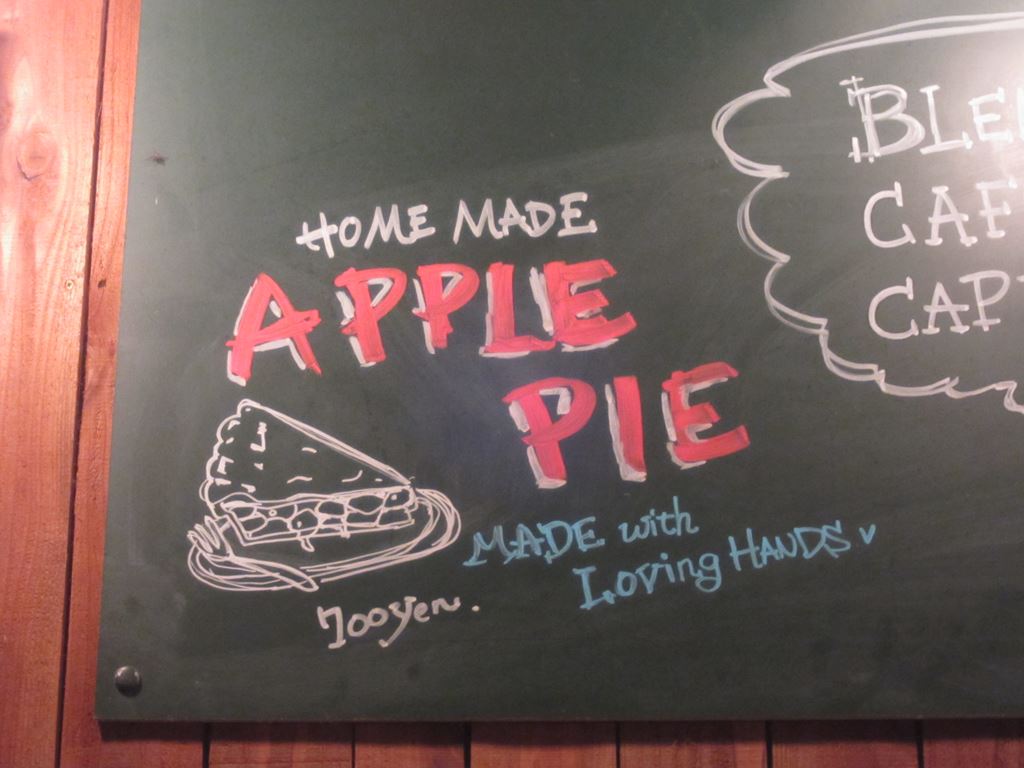 HOME MADE
APPLE
PIE
MADE with
Loving HANDS
700yen.